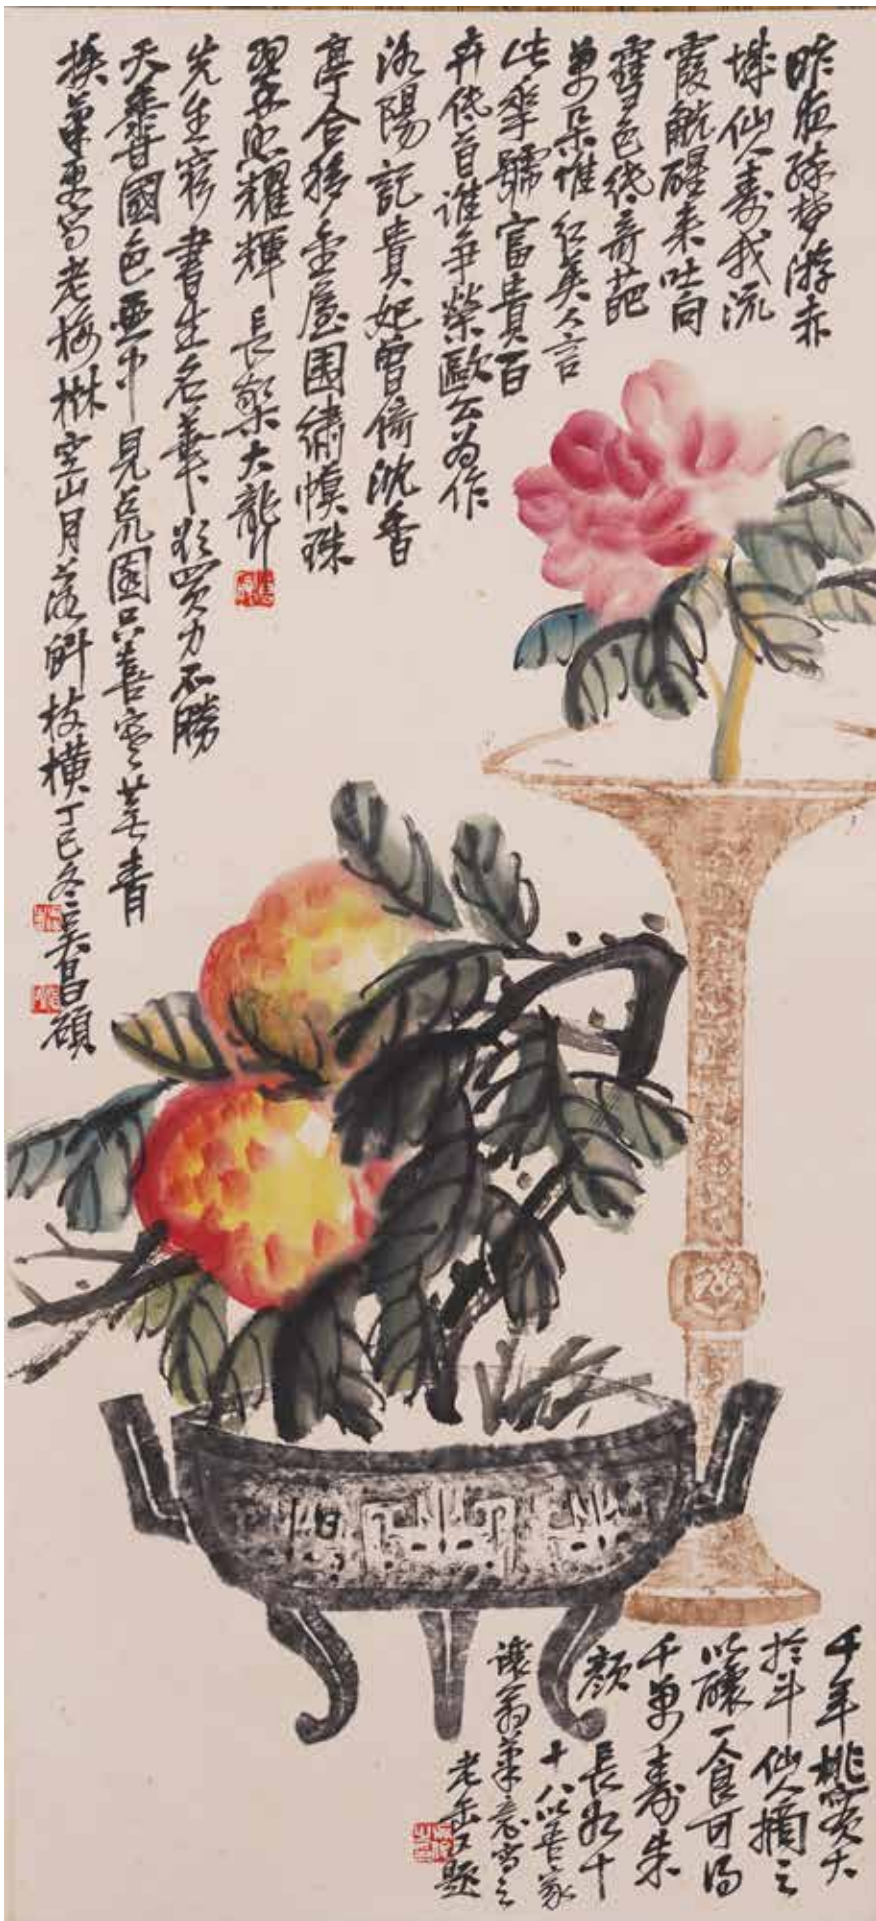 昨夜酣夢游赤
城仙人壽我流
霞觥醒來吐向
雪色紙奇葩
萬朵誰紅英人言
此華號富貴百
卉低首誰爭榮歐公為作
洛陽記貴妃曾倚沈香
亭合移金屋圍繡幙珠
翠照耀輝長檠大聾
先生窮書生名華欲買力不勝
天香國色畫中見荒園只喜寒蕪青
換筆更寫老梅樹空山月落斜枝橫丁巳冬吳昌碩
千年桃實大
於斗仙人摘之
以釀一食可得
千萬壽朱
顏長如十
十八以吾家
讓翁筆意寫之
老缶又題